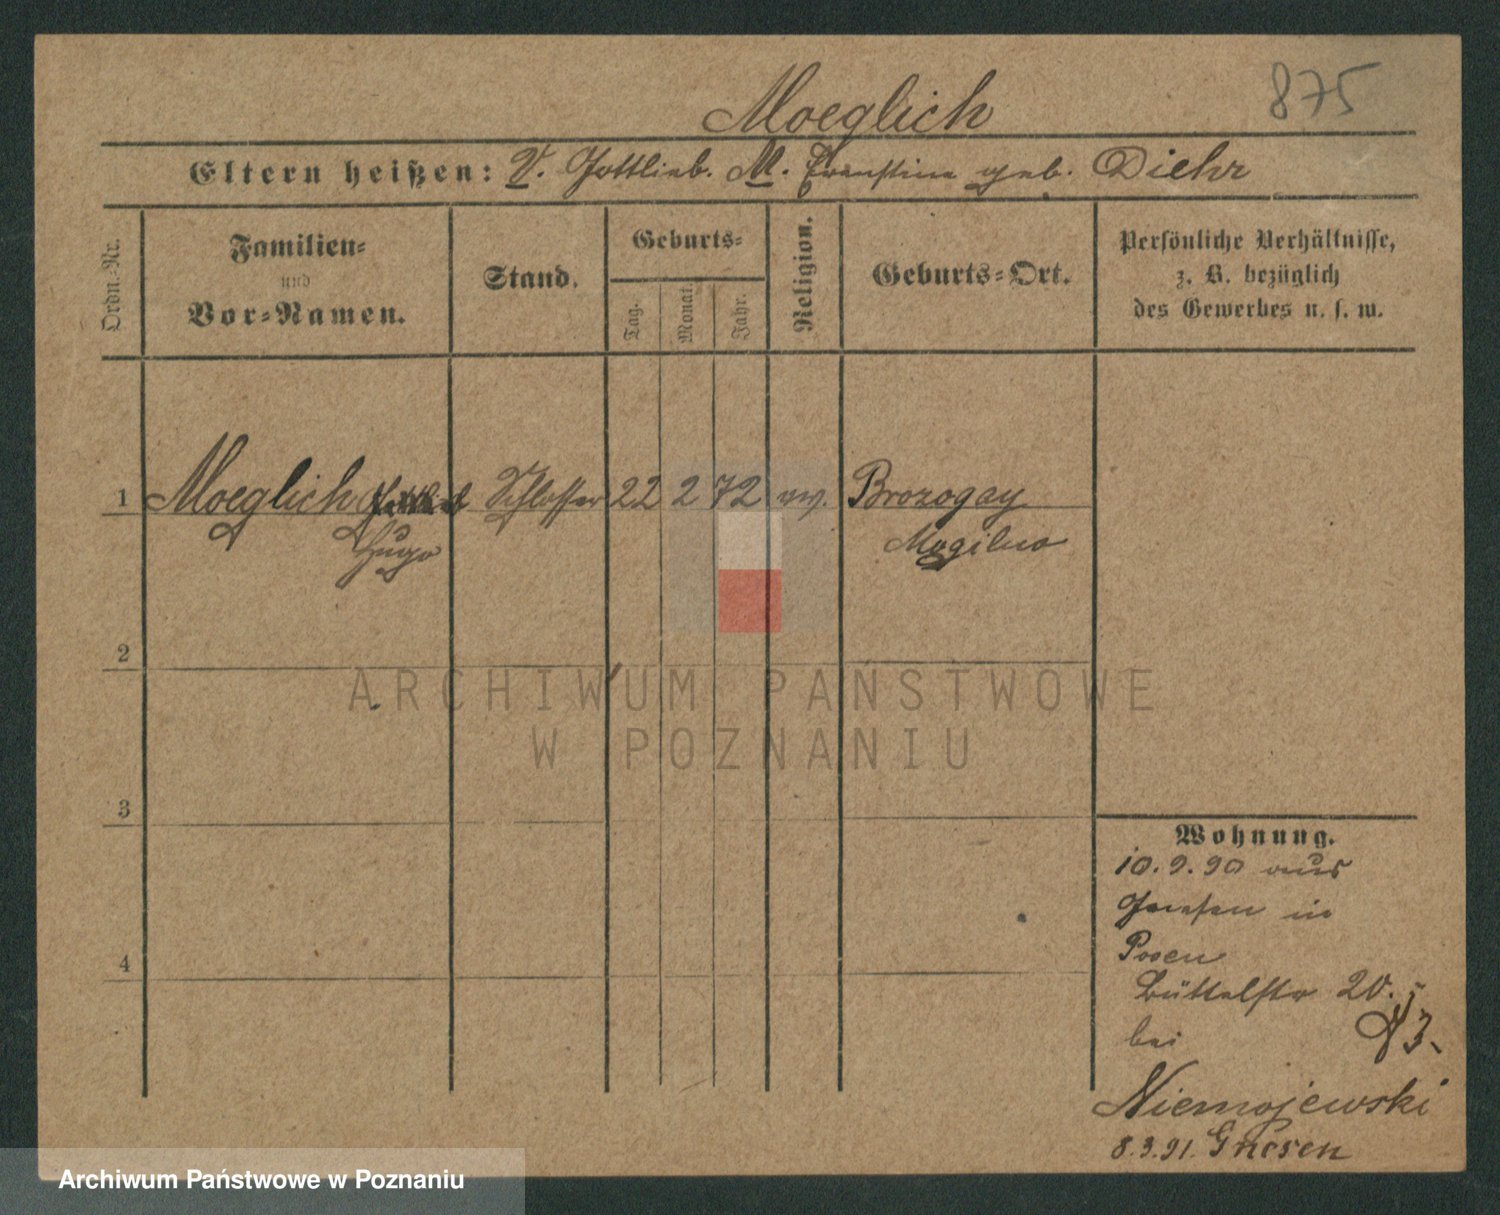 875
Moeglich
Eltern heißen: V. Gottlieb. M. Ernstine geb. Diehr
Ordn.-Nr.
Familien-
und
Vor-Namen.
Stand.
Geburts-
Tag.
Monat.
Jahr.
Religion.
Geburts-Ort.
Persönliche Verhältnisse,
z. B. bezüglich
des Gewerbes u. s. w.
1 Moeglich Schlosser 22 2 72 ev. Brozogay
Hugo Mogilno
2
ARCHIWUM PAŃSTWOWE
W POZNANIU
3
4
Wohnung.
10.9.90 aus
Gnesen in
Posen
Büttelstr 20.
bei
Niemojewski
8.3.91. Gnesen
Archiwum Państwowe w Poznaniu